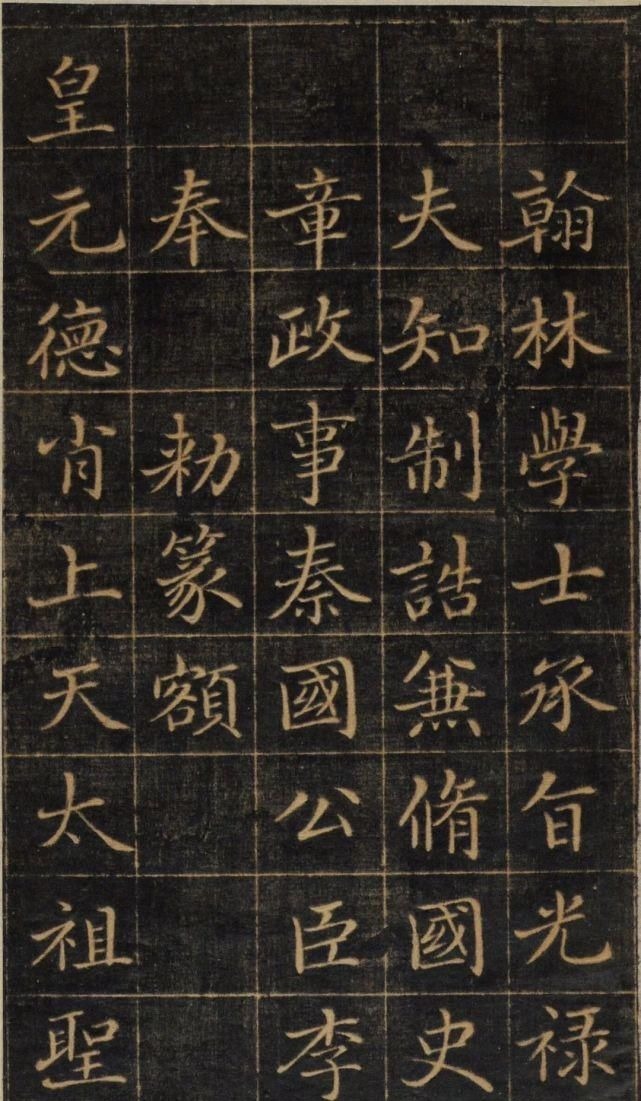 翰林學士承旨光禄
夫知制誥兼脩國史
章政事秦國公臣李
奉勑篆額
皇元德肖上天太祖聖